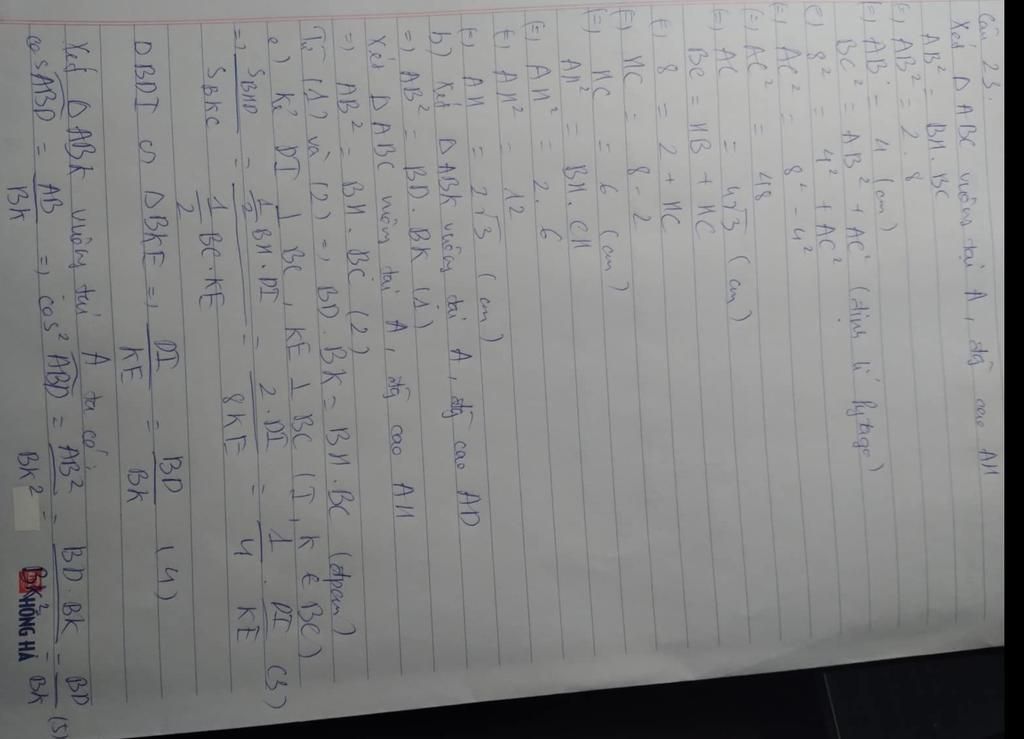 Câu 23.
Xét Δ ABC vuông tại A, đg cao AH
AB² = BH.BC
(=) AB² = 2.8
(=) AB = 4 (cm)
BC² = AB² + AC² (định lí Pytago)
(=) 8² = 4² + AC²
(=) AC² = 8² - 4²
(=) AC² = 48
(=) AC = 4√3 (cm)
BC = HB + HC
(=) 8 = 2 + HC
(=) HC = 8 - 2
(=) HC = 6 (cm)
AH² = BH.CH
(=) AH² = 2.6
(=) AH² = 12
(=) AH = 2√3 (cm)
b) Xét Δ ABK vuông tại A, đg cao AD
=) AB² = BD.BK (1)
Xét Δ ABC vuông tại A, đg cao AH
=) AB² = BH.BC (2)
Từ (1) và (2) =) BD.BK = BH.BC (đpcm)
c) Kẻ DI ⊥ BC, KE ⊥ BC (I, K ∈ BC)
=) S_BHD / S_BKC = (1/2 BH.DI) / (1/2 BC.KE) = 2.DI / 8KE = 1/4 . DI/KE (3)
Δ BDI ∽ Δ BKE =) DI/KE = BD/BK (4)
Xét Δ ABK vuông tại A ta có:
cos ABD = AB/BK =) cos² ABD = AB²/BK² = BD.BK/BK² = BD/BK (5)
HỒNG HÀ